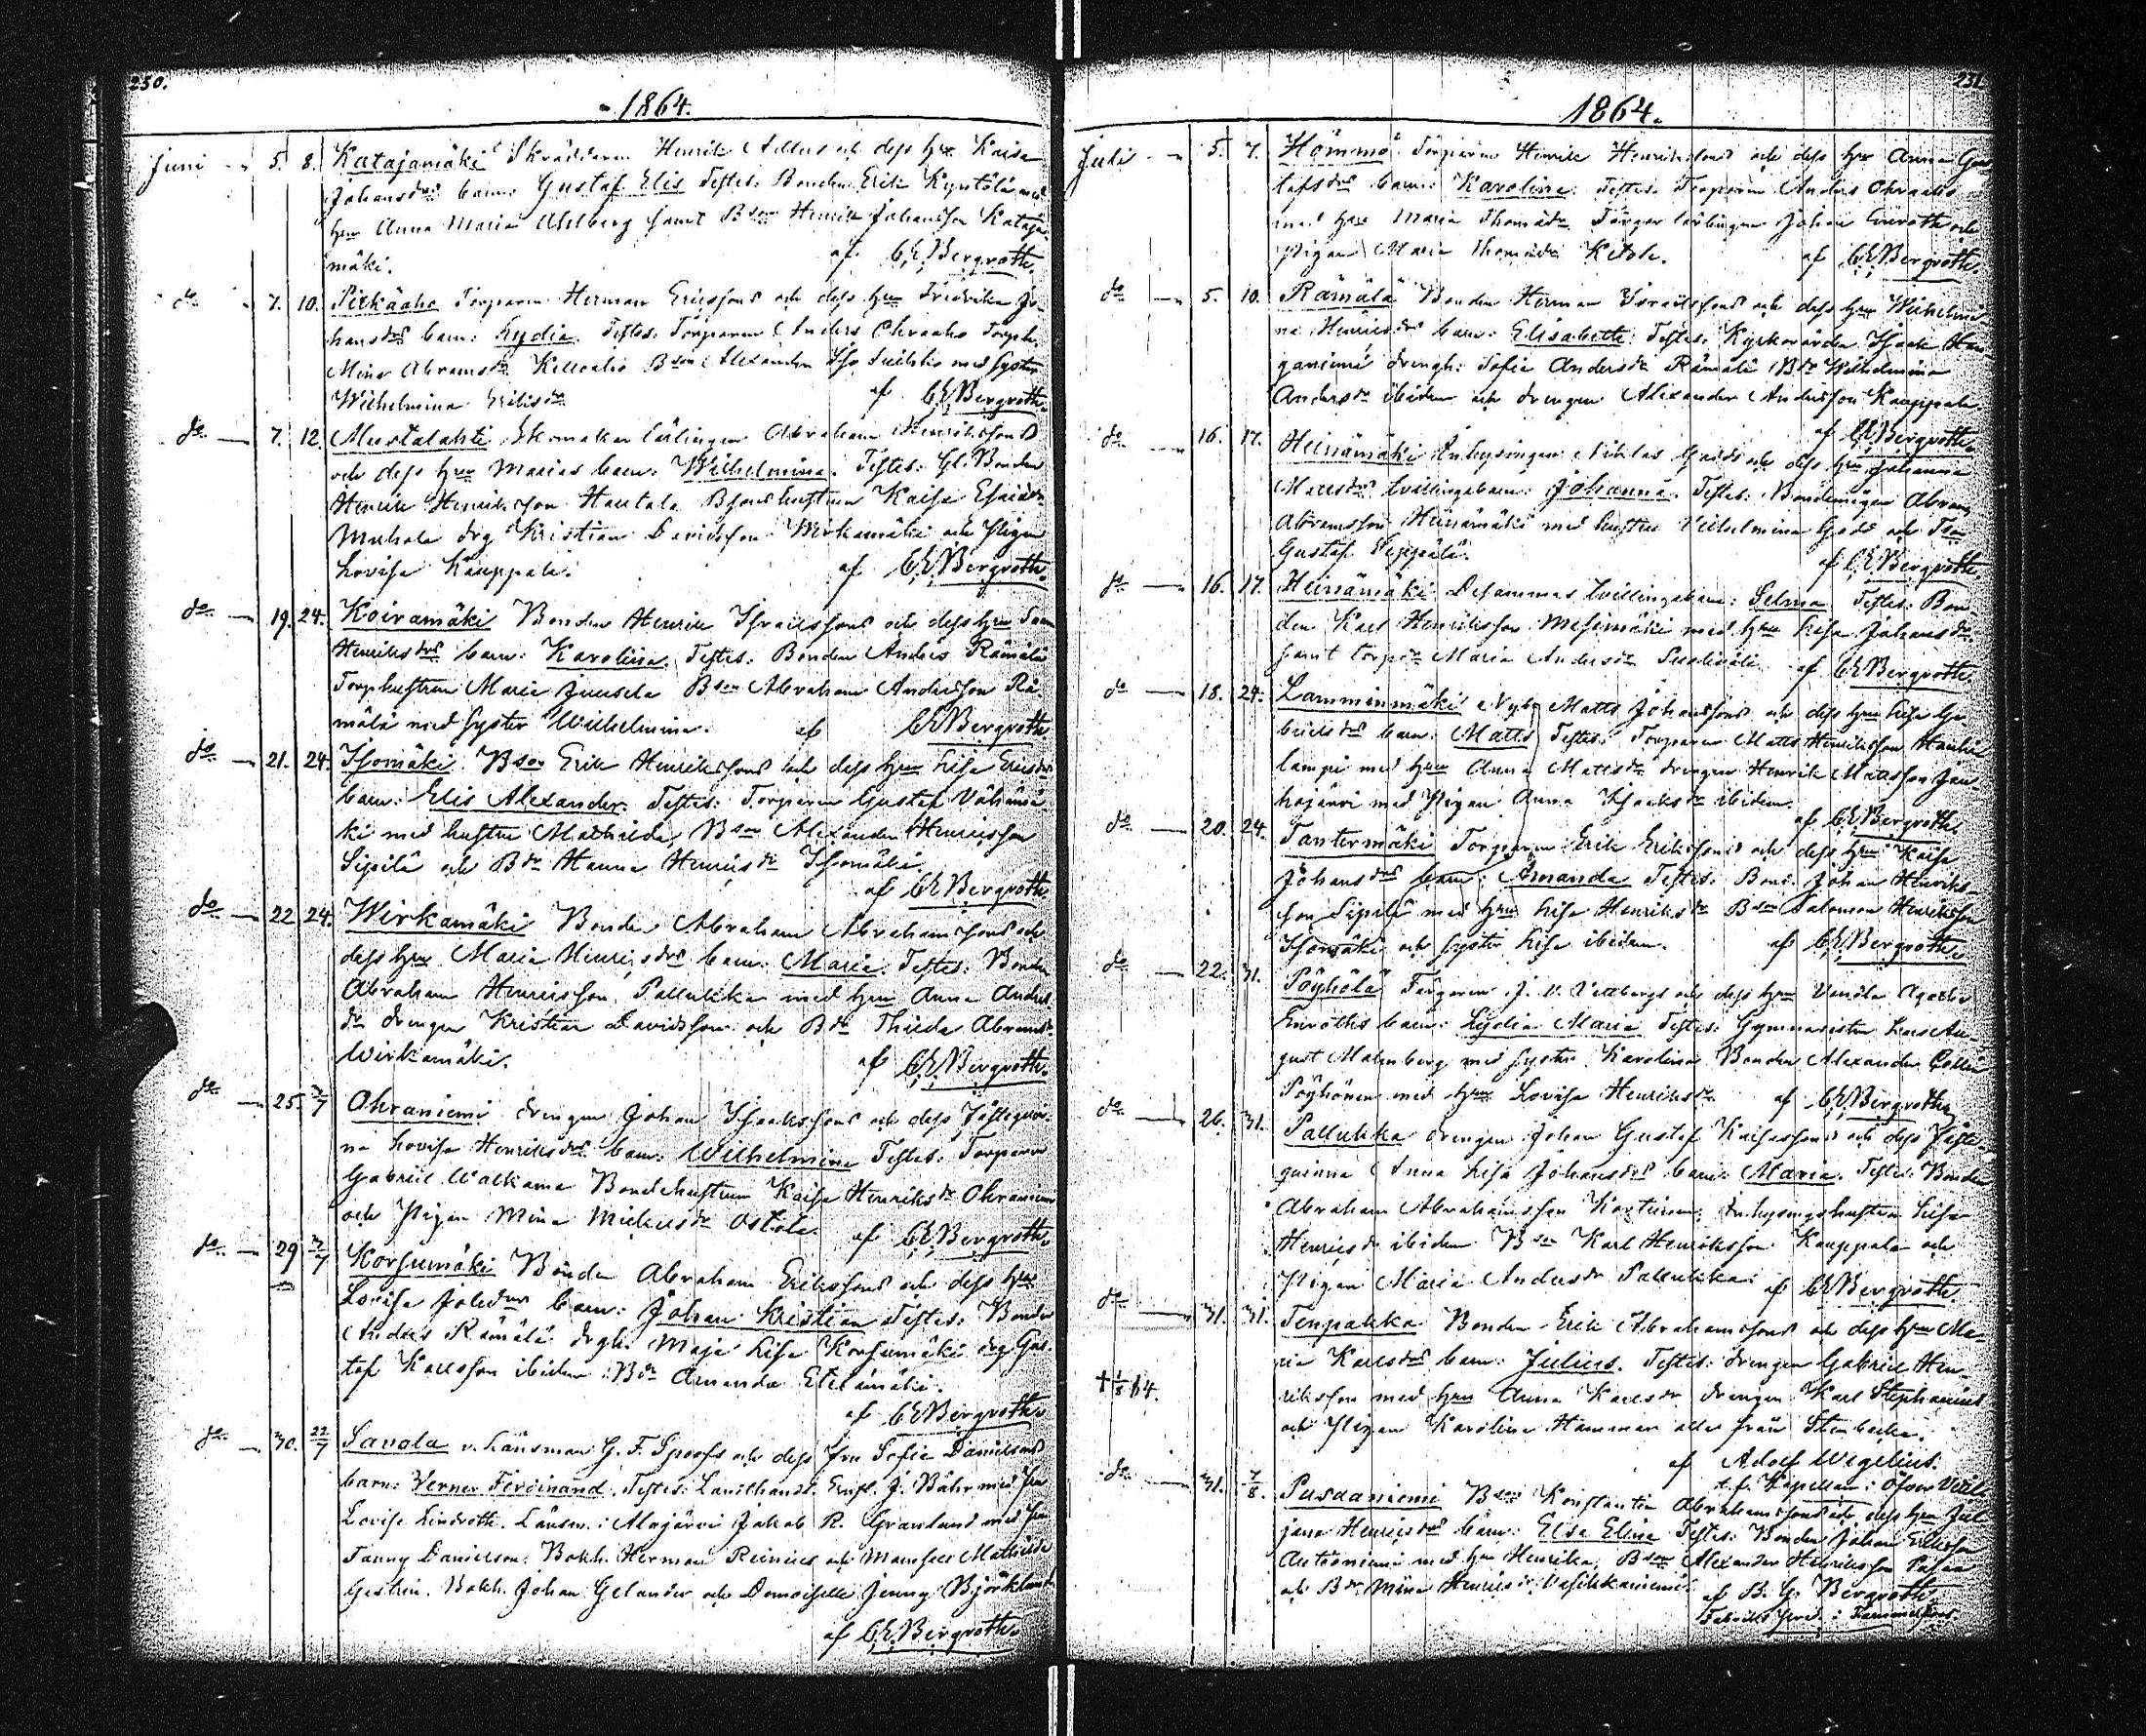 250.
1864.
Juni 5. 8. Katajamäki Skräddaren Henrik och dess hu Kaisa
Johansdrs barn: Gustaf Elis Testes: Bonden Erik Kyntölä med
hu Anna Maria Ahlberg samt Bson Henrik Johansson Kataja-
mäki. af C.E. Bergroth.
do 7. 10. Pitkäaho Torparen Herman Erikssons och dess hu Fredrika Jo-
hansdrs barn: Lydia. Testes: Torparen Anders Ohraaho
Mina Abramsdr Bson Alexander med syster
Wilhelmina Eriksdr af C.E. Bergroth.
do 7. 12. Mustalahti Skomakar lärlingen Abraham Henrikssons
och dess hu Marias barn: Wilhelmina. Testes: Gl. Bonden
Henrik Henriksson Hautala Bondhustrun Kaisa Esaidr
drg Kristian Davidsson Wirkamäki och Pigan
Lovisa Kauppila. af C.E. Bergroth.
do 19. 24. Koiramäki Bonden Henrik Israelssons och dess hu
Henriksdrs barn: Karolina. Testes: Bonden Anders Rämälä
Torphustrun Maria Juusela Bson Abraham Andersson Rä-
mälä med syster Wilhelmina. af C.E. Bergroth
do 21. 24. Isomäki. Bson Erik Henrikssons och dess hu Lisa Ericsdrs
barn: Elis Alexander. Testes: Torparen Gustaf Vähämä-
ki med hustru Mathilda, Bson Alexander Henricsson
Sipilä och Bdr Hanna Henricsdr Isomäki.
af C.E. Bergroth
do 22 24. Wirkamäki Bonden Abraham Abrahamssons och
dess hu Maria Henricsdrs barn: Maria. Testes: Bonden
Abraham Henricsson Pallukka med hu Anna Anders
dr drengen Kristian Davidsson och Bdr Thilda Abramsdr
Wirkamäki. af C.E. Bergroth.
do 25. 3/7 Ohraniemi drengen Johan Isakssons och dess Fästeqvin-
na Lovisa Henriksdrs barn: Wilhelmina Testes: Torparen
Gabriel Walkama Bondehustrun Kaisa Henriksdr Ohraniemi
och Pigan Mina Mickelsdr af C.E. Bergroth.
do 29 3/7 Korsumäki Bonden Abraham Erikssons och dess hu
Lovisa Johsdrs barn: Johan Kristian Testes: Bonden
Anders Rämälä drgh. Maja Lisa Korsumäki drg Gus-
taf Karlsson ibidem Bdr Amanda Etelämäki.
af C.E. Bergroth
do 30. 22/7 Savola v. Länsman G. F. Spoofs och dess fru Sofia Danielsons
barn: Verner Ferdinand. Testes: J. Bähr med fru
Lovisa Lindroth. Länsm. i Alajärvi Jakob R. Granlund med fru
Fanny Danielson. Bokh. Herman Reinius och Mamsell Mathilda
Gestrin. Bokh. Johan Gelander och Demoiselle Jenny Björklund
af C.E. Bergroth.
231.
1864.
Juli 5. 7. Hömmö Torparen Henrik Henrikssons och dess hu Anna Gus-
tafsdrs barn: Karolina. Testes: Torparen Anders Ohraaho
med hu Maria Thomasdr. Färgar lärlingen Johan Enroth och
Pigan Maria Thomasdr Ketola. af C.E. Bergroth.
do 5. 10. Rämälä Bonden Herman Israelssons och dess hu Wilhelmi-
na Henricsdrs barn: Elisabeth. Testes: Kyrkovärden Isaak Han-
ganiemi drengh. Sofia Andersdr Rämälä Bdr Wilhelmina
Andersdr ibidem och drengen Alexander Andersson Kauppila.
af C.E. Bergroth.
do 16. 17. Heinämäki Inhysingen Niklas och dess hu Johanna
Mattsdrs tvillingebarn: Johanna. Testes: Bondemågen Abram
Abramsson Heinämäki med hustru Vilhelmina
Gustaf Seppälä. af C.E. Bergroth.
do 16. 17. Heinämäki Desammas tvillingebarn: Selma Testes: Bon-
den Karl Henriksson Mesimäki med hu Lisa Johansdr
samt Maria Andersdr af C.E. Bergroth.
do 18. 24. Lamminmäki Nyb. Matts Johanssons och dess hu Lisa Ga-
brielsdrs barn: Matts Testes: Torparen Matts Henriksson
lampi med hu Anna Mattsdr drengen Henrik Mattsson
hajärvi med Pigan Anna Isaksdr ibidem.
af C.E. Bergroth.
do 20. 24. Tantermäki Torparen Erik Erikssons och dess hu Kaisa
Johansdrs barn: Amanda Testes: Bond. Johan Henriks-
son Sipilä med hu Lisa Henriksdr Bson Salomon Henriksson
Isomäki och syster Lisa ibidem. af C.E. Bergroth.
do 22. 31. Pöyhölä Färgaren J. V. Vettbergs och dess hu Vendla Agatha
Enroths barn: Lydia Maria Testes: Gymnasisten Lars Au-
gust Malmberg med syster Karolina Bonden Alexander
Pöyhönen med hu Lovisa Henriksdr. af C.E. Bergroth
do 26. 31. Pallukka drengen Johan Gustaf Kaisassons och dess Fäste-
qvinna Anna Lisa Johansdrs barn: Maria. Testes: Bonden
Abraham Abrahamsson Kortiniemi, Inhysingshustrun Lisa
Henricsdr ibidem Bson Karl Henriksson Kauppila och
Pigan Maria Andersdr Pallukka. af C.E. Bergroth.
do 31. 31. Tenpakka Bonden Erik Abrahamssons och dess hu Ma-
ria Karlsdrs barn: Julius. Testes: drengen Gabriel Hen-
† 1/8 64. riksson med hu Anna Karlsdr drengen Karl Stephanius
och Pigan Karolina Hammar alla från Stenbacka.
af Adolf Wegelius.
t.f. Kapellan i Öfver Vetil
do 31. 7/8. Pasaaniemi Bson Konstantin Abrahamssons och dess hu Jul-
jana Henricsdrs barn: Elsa Elina Testes: Bonden Johan Eriksson
Autioniemi med hu Henrika, Bson Alexander Henriksson
och Bdr Mina Henricsdr Vasikkaniemi.
af B. G. Bergroth.